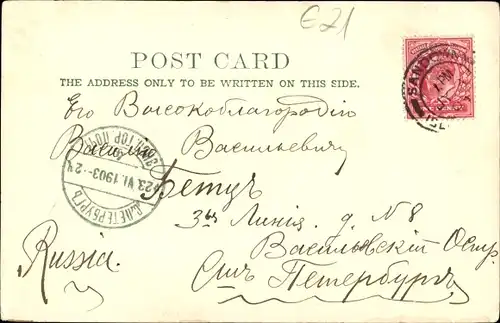 E21
POST CARD
THE ADDRESS ONLY TO BE WRITTEN ON THIS SIDE.
SANDO
Его Высокоблагородію
Василію Васильевичу
Бетцъ
3ья Линія д. N 8
Васильевскій Остр.
Russia.
С.ПЕТЕРБУРГЪ
23.VI.1903-2Ч